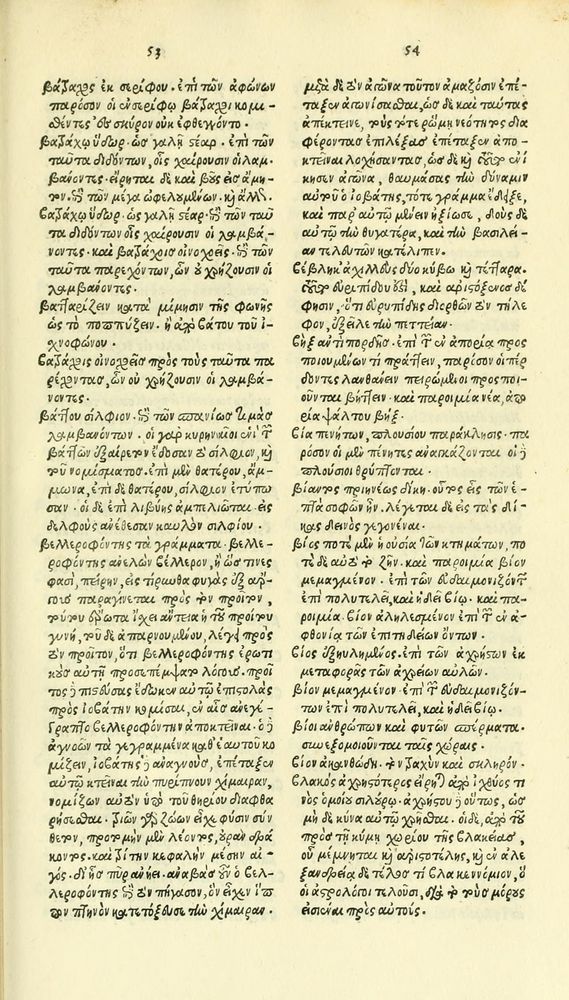 53
βάτραχος ἐκ σερίφου. ἐπὶ τῶν ἀφώνων
παρόσον οἱ ἐν σερίφῳ βάτραχοι κομι-
σθέντες εἰς σκῦρον οὐκ ἐφθέγγοντο.
βατράχῳ ὕδωρ. ὡς γαλῇ στέαρ. ἐπὶ τῶν
ταῦτα διδόντων, οἷς χαίρουσιν οἱ λαμ-
βάνοντες. εἴρηται δὲ καὶ βοῦς εἰς ἄμη-
τον. ἐπὶ τῶν μέγα ὠφελουμένων. καὶ ἄλλο.
βατράχῳ ὕδωρ. ὡς γαλῇ στέαρ. ἐπὶ τῶν ταῦ
τα διδόντων οἷς χαίρουσιν οἱ λαμβά-
νοντες. καὶ βατράχοις οἰνοχοεῖς. ἐπὶ τῶν
ταῦτα παρεχόντων, ὧν οὐ χρῄζουσιν οἱ
λαμβάνοντες.
βατταρίζειν κατὰ μίμησιν τῆς φωνῆς
ὡς τὸ ποππύζειν. ἢ ἀπὸ βάτου τοῦ ἰ-
χνοφώνου.
βατράχοις οἰνοχοεῖς πρὸς τοὺς ταῦτα πα
ρέχοντας, ὧν οὐ χρῄζουσιν οἱ λαμβά-
νοντες.
βάττου σίλφιον. ἐπὶ τῶν σπανίας τιμὰς
λαμβανόντων. οἱ γὰρ κυρηναῖοι ἑνὶ τῶν
βαττιαδῶν ἐξαίρετον ἔδοσαν σίλφιον, καὶ
τοῦ νομίσματος. ἐπὶ μὲν θατέρου, ἄμ-
μωνα, ἐπὶ δὲ θατέρου, σίλφιον ἐτύπω
σαν. οἱ δὲ ἐπὶ λιβύης ἀμπελιῶται εἰς
δελφοὺς ἀνέθεσαν καυλὸν σιλφίου.
βελλεροφόντης τὰ γράμματα. βελλε-
ροφόντης ἀνελὼν βέλλερον, ἢ ὥς τινες
φασὶ, πείρην, εἰς τίρυνθα φυγὰς ἐξ ἄρ-
γους παραγίνεται πρὸς τὸν προῖτον,
τούτου ἔρωτα ἴσχει ἄντεια ἡ τοῦ προίτου
γυνὴ, τοῦ δὲ ἀπαρνουμένου, λέγει πρὸς
τὸν προῖτον, ὅτι βελλεροφόντης ἐρωτι
κοὺς αὐτῇ προσεπέμψατο λόγους. προῖ
τος δὲ πιστεύσας ἔδωκεν αὐτῷ ἐπιστολὰς
πρὸς ἰοβάτην κομίσαι, ἐν αἷς ἀνεγέ-
γραπτο βελλεροφόντην ἀποκτεῖναι. ὁ δὲ
ἀγνοῶν τὰ γεγραμμένα καθ' ἑαυτοῦ κο
μίζειν, ἰοβάτης δὲ ἀναγνοὺς, ἐπέταξεν
αὐτῷ κτεῖναι τὴν πυρίπνουν χίμαιραν,
νομίζων αὐτὸν ὑπὸ τοῦ θηρίου διαφθα
ρήσεσθαι. τριῶν γὰρ ζώων εἶχε φύσιν σύν
θετον, προτομὴν μὲν λέοντος, οὐρὰν δρά
κοντος. καὶ τρίτην κεφαλὴν μέσην αἰ-
γός. δι' ἧς πῦρ ἀνίει. ἀναβὰς οὖν ὁ βελ-
λεροφόντης τὸν πήγασον, ὃν εἶχεν ἵπ
πον πτηνὸν κατετόξευσε τὴν χίμαιραν.
54
μετὰ δὲ τὸν ἀγῶνα τοῦτον ἀμαζόσιν ἐπέ-
ταξεν ἀγωνίσασθαι, ὡς δὲ καὶ ταύτας
ἀπέκτεινε, τοὺς τότε ῥώμῃ νεότητος δια
φέροντας ἐπιλέξας ἐπέταξεν ἀπο-
κτεῖναι λοχήσαντας, ὡς δὲ καὶ τοῦτον ἐνί
κησεν ἀγῶνα, θαυμάσας τὴν δύναμιν
αὐτοῦ ὁ ἰοβάτης, τότε γράμματα ἔδειξε,
καὶ παρ' αὐτῷ μένειν ἠξίωσε, δοὺς δὲ
αὐτῷ τὴν θυγατέρα, καὶ τὴν βασιλεί-
αν τελευτῶν κατέλιπεν.
βέβληκ' ἀχιλλεὺς δύο κύβω καὶ τέτταρα.
τοῦτο εὐριπίδου ἐστὶ, καὶ ἀριστόξενος δέ
φησιν, ὅτι εὐριπίδης διορθῶν τὸν τήλε
φον, ἐξεῖλε τὴν πεττείαν.
βὴξ ἀντὶ πορδῆς. ἐπὶ τῶν ἐν ἀπορίᾳ προσ
ποιουμένων τὶ πράττειν, παρόσον οἱ πέρ
δοντες λανθάνειν πειρώμενοι προσποι-
οῦνται βήττειν. καὶ παροιμία νέα, ἀπο
ρία ψάλτου βήξ.
βία πενήτων, πλουσίου παράκλησις. πα
ρόσον οἱ μὲν πένητες ἀναγκάζονται οἱ δὲ
πλούσιοι θρύπτονται.
βίαντος πριηνέως δίκη. οὗτος εἷς τῶν ἑ-
πτὰ σοφῶν ἦν. λέγεται δὲ εἰς τὰς δί-
κας δεινὸς γεγονέναι.
βίος ποτὲ μὲν ἡ οὐσία τῶν κτημάτων, πο
τὲ δὲ αὐτὸ τὸ ζῆν. καὶ παροιμία βίον
μεμαγμένον. ἐπὶ τῶν εὐδαιμονιζόντων
ἐπὶ πολυτελεῖ, καὶ ἡδεῖ βίῳ. καὶ πα-
ροιμία. βίον ἀληλεσμένον ἐπὶ τῶν ἐν ἀ-
φθονίᾳ τῶν ἐπιτηδείων ὄντων.
βίος ἐξηυλημένος. ἐπὶ τῶν ἀχρήστων ἐκ
μεταφορᾶς τῶν ἀχρείων αὐλῶν.
βίον μεμαγμένον. ἐπὶ τῶν εὐδαιμονιζόν-
των ἐπὶ πολυτελεῖ, καὶ ἡδεῖ βίῳ.
βίοι ἀνθρώπων καὶ φυτῶν σπέρματα.
συνεξομοιοῦνται ταῖς χώραις.
βίον ἀκανθώδη. τὸν τραχὺν καὶ σκληρόν.
βλακὸς ἀχρηστότερος εἴρηται ἀπὸ ἰχθύος τι
νὸς ὁμοίου σιλούρῳ. ἀχρήστου δὲ οὕτως, ὡς
μὴ δὲ κύνα αὐτῷ χρῆσθαι. οἱ δὲ, ἀπὸ τοῦ
πρὸς τῇ κύμῃ χωρίου τῆς βλακείας,
οὗ μέμνηται καὶ ἀριστοτέλης, καὶ ἐν ἀλε
ξανδρείᾳ δὲ τέλος τι βλακεννόμιον, ὃ
οἱ ἀστρολόγοι τελοῦσι, διὰ τὸ τοὺς μωροὺς
εἰσιέναι πρὸς αὐτούς.